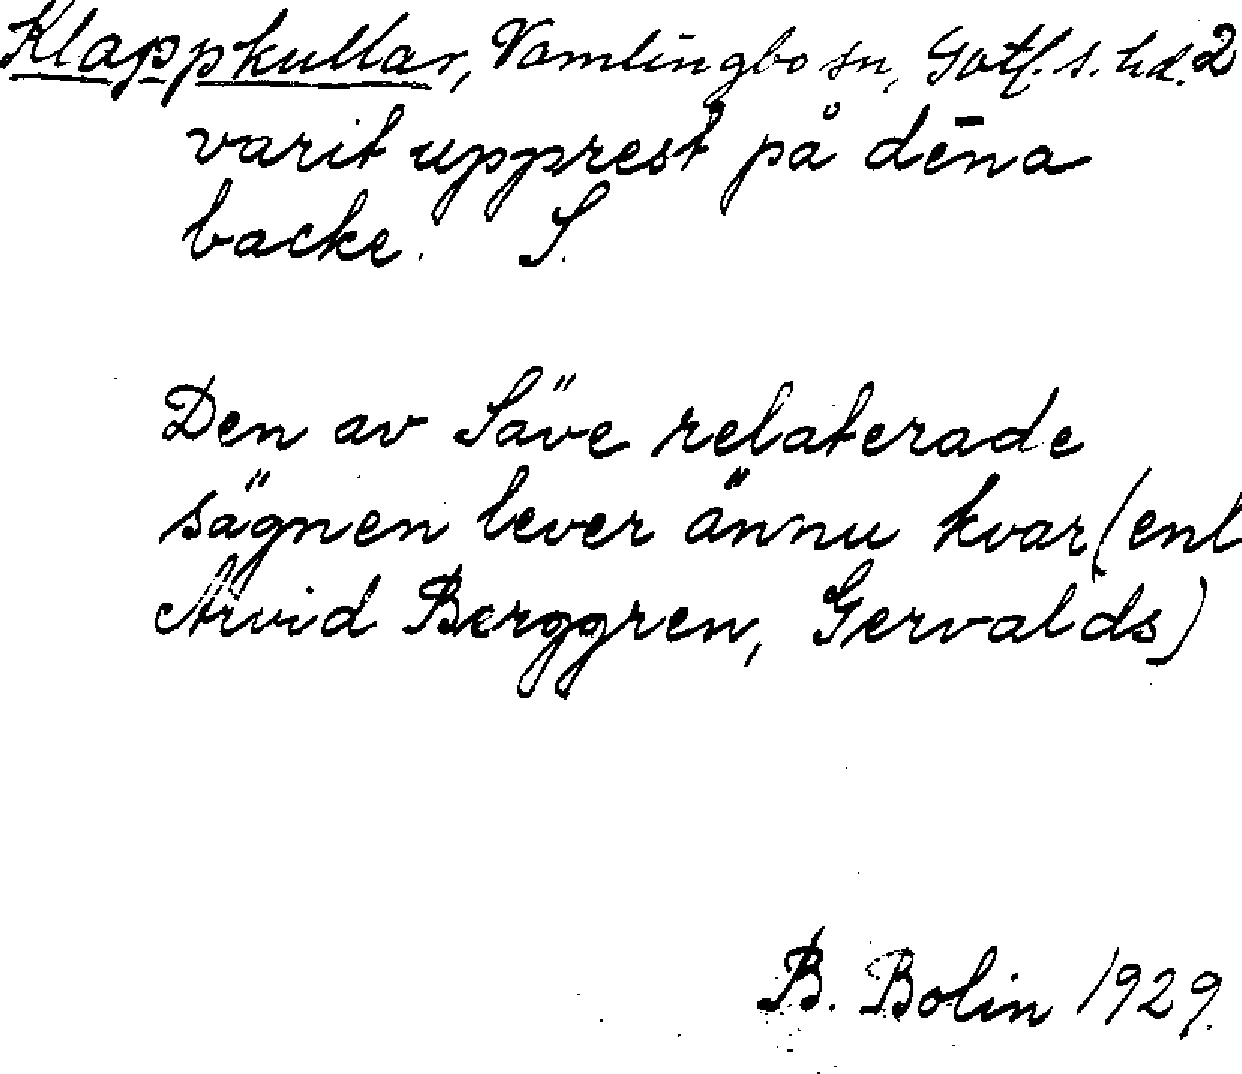 Klappkullar, Vamlingbo sn, Gotl. s. hd. 2
varit upprest på den̄a
backe. S.
Den av Säve relaterade
sägnen lever ännu kvar (enl
Arvid Berggren, Gervalds)
B. Bolin 1929.